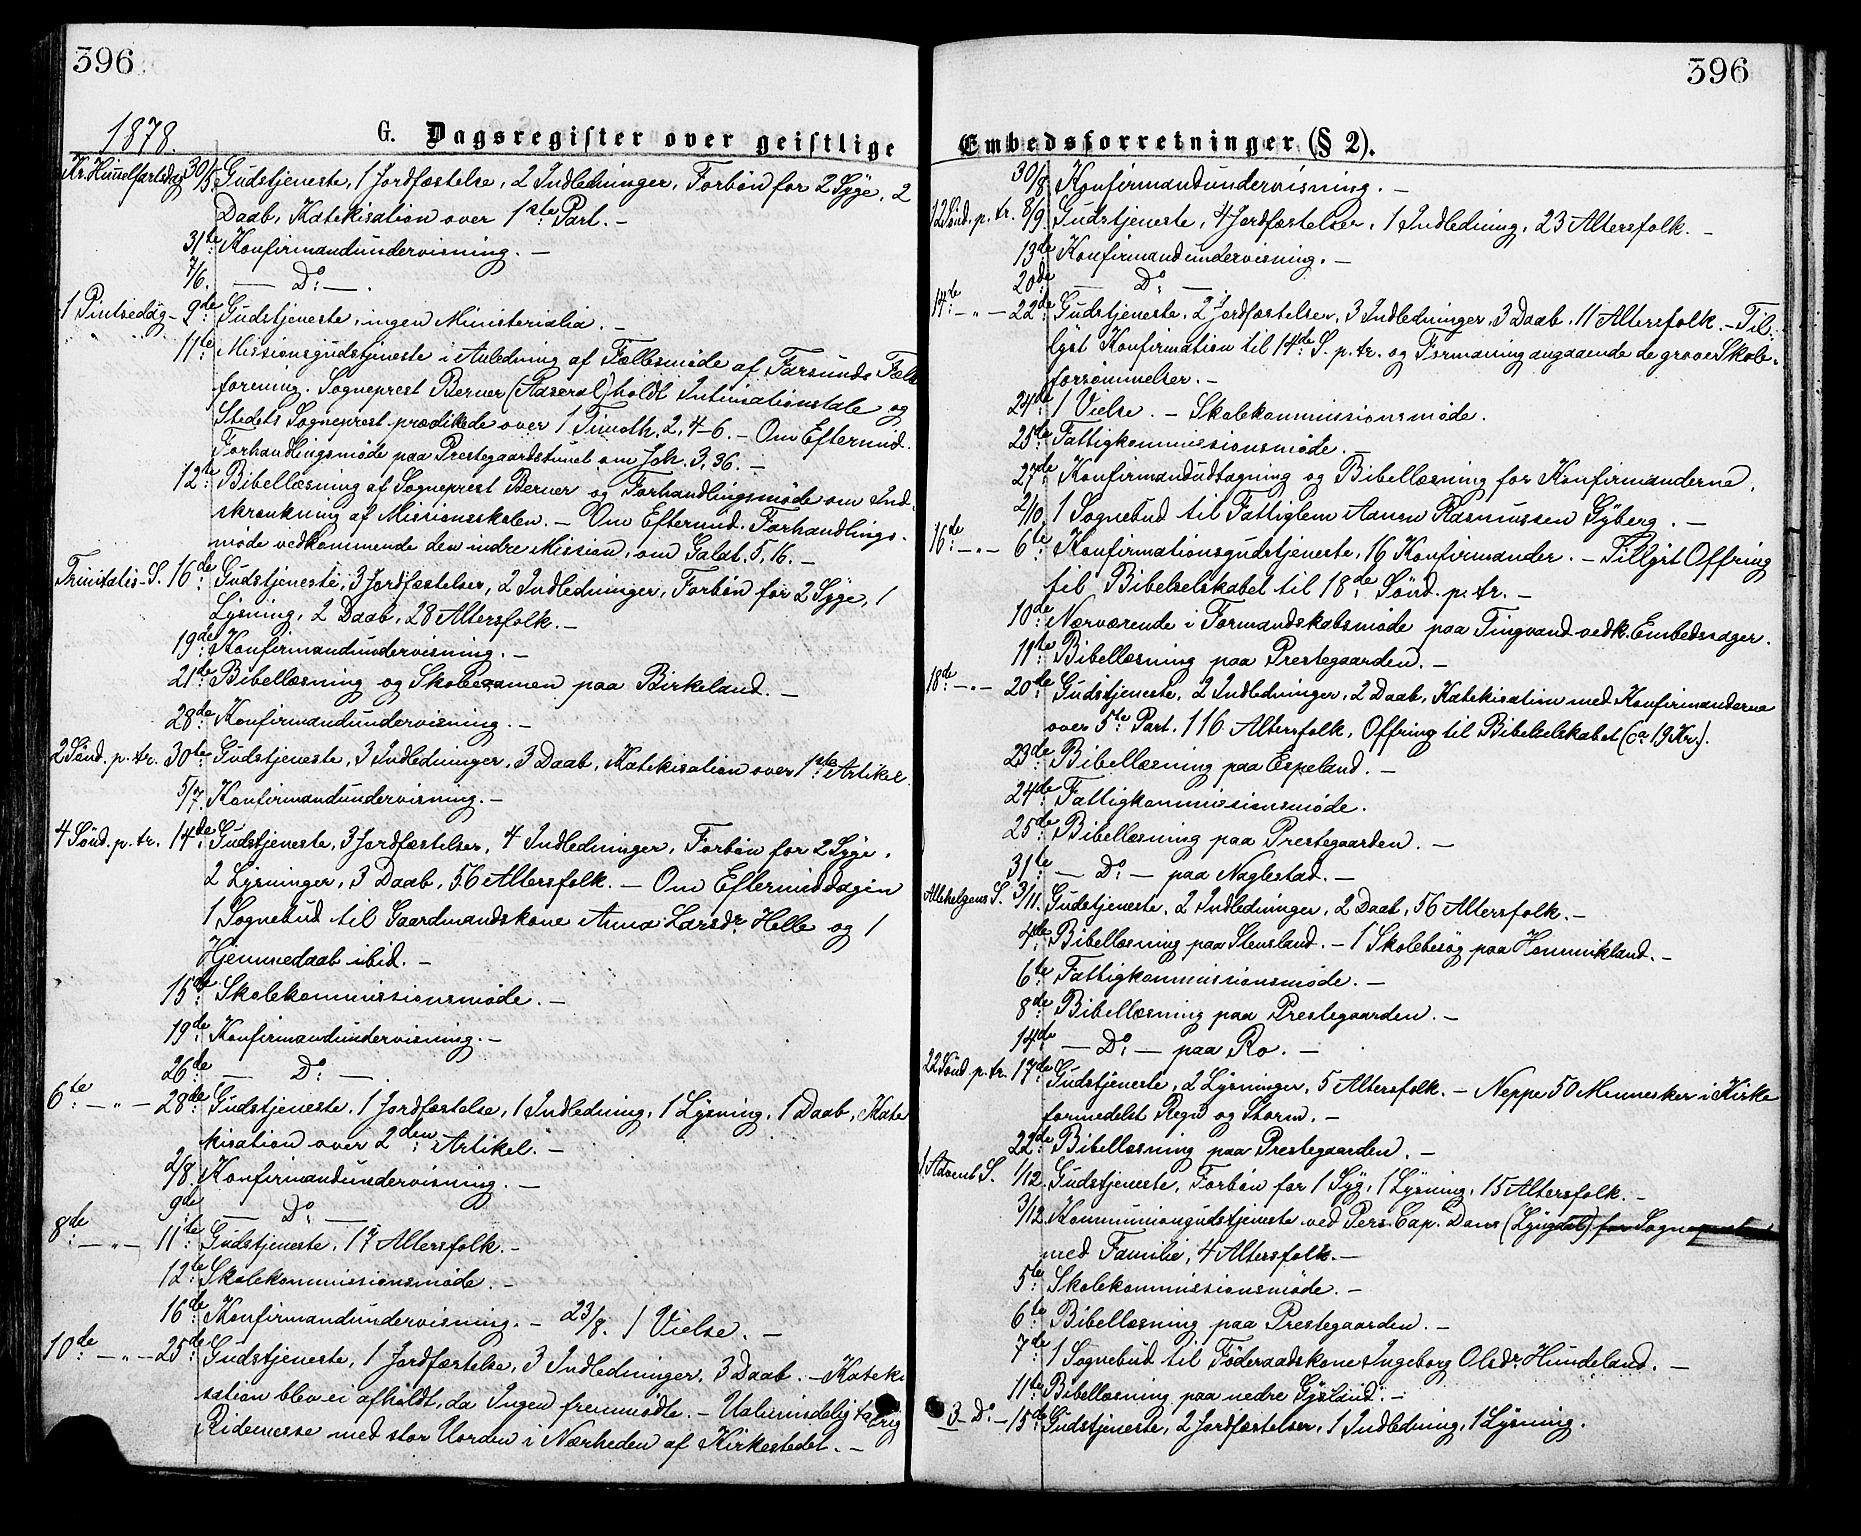 396
1878.
G. Dagsregister over geistlige
Kr. Himelfartsdag 30/5 Gudstjeneste, 1 Jordfæstelse, 2 Indledninger, Forbøn for 2 Syge, 2
Daab, Katekisation over 1ste Part. –
31te Konfirmandundervisning. –
7/6. — Do: — .
1 Pintsedag – 9de Gudstjeneste, ingen Ministerialia. –
11te Missionsgudstjeneste i Anledning af Fællesmøde af Farsunds Fælles
forening. Sogneprest Berner (Aaseral) holdt Intimationstale og
Stedets Sogneprest prædikede over 1 Timoth. 2, 4–6. – Om Eftermid.
Forhandlingsmøde paa Prestegaardstunet om Joh. 3, 36. –
12te Bibellæsning af Sogneprest Berner og Forhandlingsmøde om Ind-
skrænkning af Missionsskolen. – Om Eftermid. Forhandlings-
møde vedkommende den indre Mission, om Galat. 5, 16. –
Trinitatis – S. 16de Gudstjeneste, 3 Jordfæstelser, 2 Indledninger, Forbøn for 2 Syge, 1
Lysning, 2 Daab, 28 Altersfolk. –
19de Konfirmandundervisning. –
21de Bibellæsning og Skoleexamen paa Birkeland. –
28de Konfirmandundervisning. –
2 Sønd. p. tr. 30te Gudstjeneste, 3 Indledninger, 3 Daab, Katekisation over 1ste Artikel
5/7. Konfirmandundervisning. –
4 Sønd. p. tr. 14de Gudstjeneste, 3 Jordfæstelser, 4 Indledninger, Forbøn for 2 Syge,
2 Lysninger, 3 Daab, 56 Altersfolk. – Om Eftermiddagen
1 Sognebud til Gaardmandskone Anna Larsdr. Helle og 1
Hjemmedaab ibid. –
15de Skolekommissionsmøde. –
19de Konfirmandundervisning. –
26de — Do: —
6te – „ – 28de Gudstjeneste, 1 Jordfæstelse, 1 Indledning, 1 Lysning, 1 Daab, Kate
kisation over 2den Artikel. –
2/8. Konfirmandundervisning. –
9de — Do —
8de – „ – 11te Gudstjeneste, 17 Altersfolk. –
12te Skolekommissionsmøde. –
16de Konfirmandundervisning. – 23/8. 1 Vielse. –
10de – „ – 25de Gudstjeneste, 1 Jordfæstelse, 3 Indledninger, 3 Daab. – Kateki
sation blev ei afholdt, da Ingen fremmødte. – Ualmindelig talrig
Ridemesse med stor Uorden i Nærheden af Kirkestedet. –
396
Embedsforretninger (§ 2).
30/8 Konfirmandundervisning. –
12 Sønd. p. tr. 8/9 Gudstjeneste, 4 Jordfæstelser, 1 Indledning, 23 Altersfolk. –
13de Konfirmandundervisning. –
20de — Do: —
14de – „ – 22de Gudstjeneste, 2 Jordfæstelser, 3 Indledninger, 3 Daab, 11 Altersfolk. – Til-
lyst Konfirmation til 14de S. p. tr. og Formaning angaaende de grove Skole-
forsømmelser. –
24de 1 Vielse. – Skolekommissionsmøde.
25de Fattigkommissionsmøde.
27de Konfirmandudtagning og Bibellæsning for Konfirmanderne.
2/10. 1 Sognebud til Fattiglem Aanen Rasmussen Gyberg. –
16de – „ – 6te Konfirmationsgudstjeneste, 16 Konfirmander. – Tillyst Offring
til Bibelselskabet til 18de Sønd. p. tr. –
10de Nærværende i Formandskabsmøde paa Tingvand vedk. Embedssager.
11te Bibellæsning paa Prestegaarden. –
18de – „ – 20de Gudstjeneste, 2 Indledninger, 2 Daab, Katekisation med Konfirmanderne
over 5te Part. 116 Altersfolk, Offring til Bibelselskabet (ca 19 Kr.).
23de Bibellæsning paa Espeland. –
24de Fattigkommissionsmøde.
25de Bibellæsning paa Prestegaarden. –
31te — Do: — paa Naglestad. –
Allehelgens S. 3/11. Gudstjeneste, 2 Indledninger, 2 Daab, 56 Altersfolk. –
4de Bibellæsning paa Stensland. – 1 Skolebesøg paa Hommekland. –
6te Fattigkommissionsmøde. –
8de Bibellæsning paa Prestegaarden. –
14de — Do: — paa Ro. –
22 Sønd. p. tr. 17de Gudstjeneste, 2 Lysninger, 5 Altersfolk. – Neppe 50 Mennesker i Kirke
formedelst Regn og Storm. –
22de Bibellæsning paa Prestegaarden. –
1 Advents S. 1/12. Gudstjeneste, Forbøn for 1 Syg, 1 Lysning, 15 Altersfolk. –
3/12. Kommuniongudstjeneste ved Pers. Cap. Dans (Lyngdal) for Sognepresten
med Familie, 4 Altersfolk. –
5te Skolekommissionsmøde. –
6te Bibellæsning paa Prestegaarden. –
7de 1 Sognebud til Føderaadskone Ingeborg Olsdr. Hundeland. –
11te Bibellæsning paa nedre Gysland. –
3 – Do – 15de Gudstjeneste, 2 Jordfæstelser, 1 Indledning, 1 Lysning.